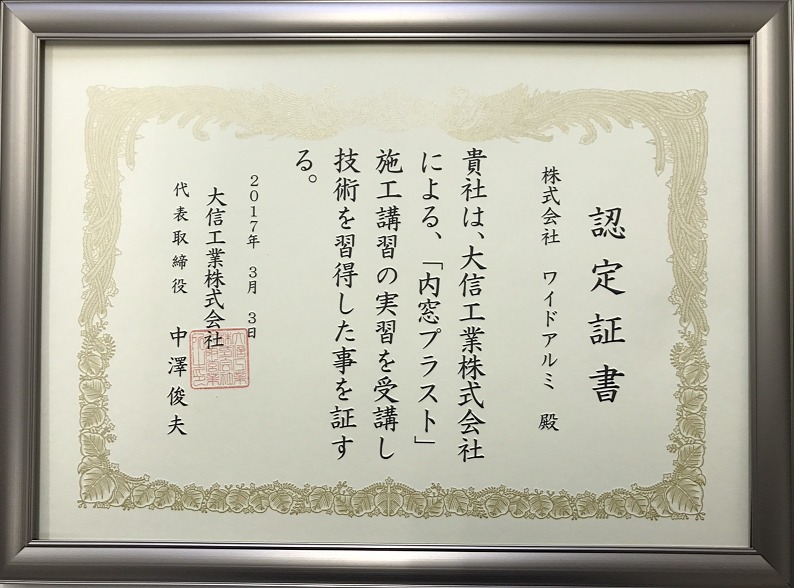 認定証書
株式会社 ワイドアルミ 殿
貴社は、大信工業株式会社
による、「内窓プラスト」
施工講習の実習を受講し
技術を習得した事を証す
る。
2017年 3月 3日
大信工業株式会社
代表取締役 中澤俊夫